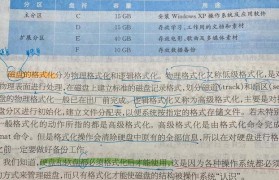 分区 盘符 容量
主分区 C 15 GB 安装 Windows XP 操作系统及应用软件
D 15 GB 存放学习、工作用的文档
扩展分区 E 40 GB 存放电影、歌曲等多媒体文件
F 10 GB
磁盘的格式化分为物理格式化和逻辑格式化。物理格式化又称低级格式化,是
物理表面进行处理,在磁盘上建立标准的磁盘记录格式,划分磁道(track)和扇区(se
盘的物理格式化一般已在出厂前完成。逻辑格式化又称为高级格式化,主要是对
盘分区进行初始化,建立文件分配表,以便系统按指定的格式存储文件。若未特别
一般格式化的动作所指的都是高级格式化。高级格式化是由格式化命令完成
mat 命令。但是格式化操作会清除硬盘中原有的全部信息,所以在对硬盘进行格
前一定要做好备份工作。
我们知道,硬盘必须经过格式化才能使用,这是因为各种操作系统都必
方式来管理磁盘,而只有格式化才能使磁盘的结构被操作系统“认识”